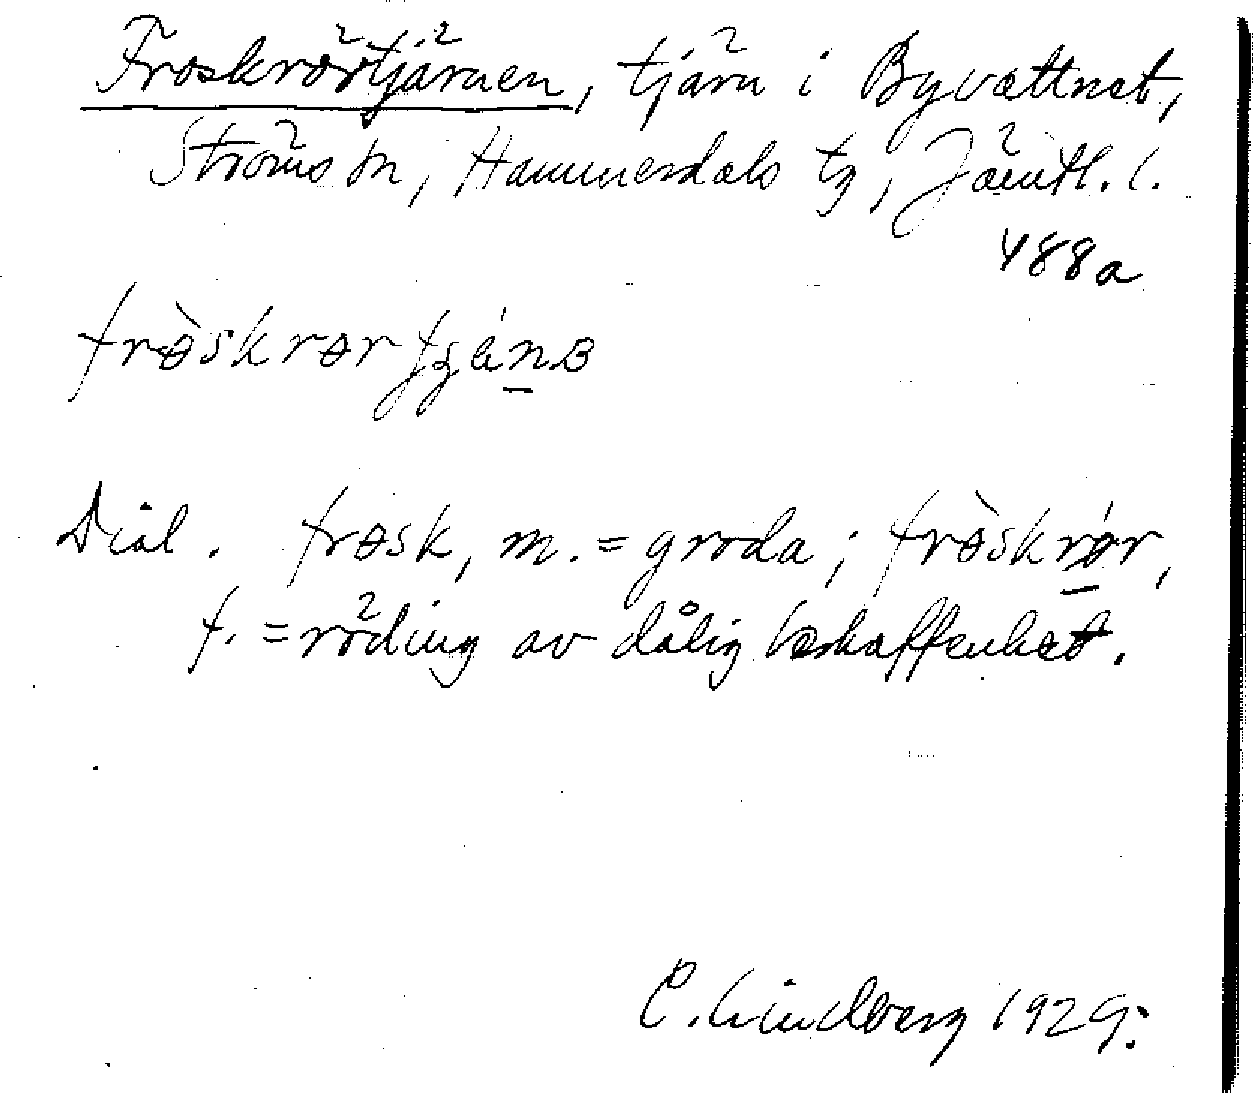 Froskrörtjärnen, tjärn i Byvattnet,
Ströms sn, Hammerdals tg, Jämtl. l.
488a
frɵ̀skrɵrtjánɜ
Dial. frɵsk, m. = groda; frɵ̀skrɵ́r,
f. = röding av dålig beskaffenhet.
C. Lindberg 1929.